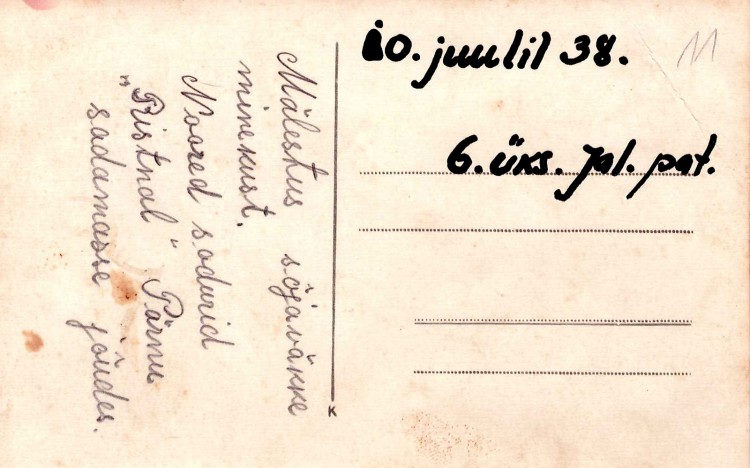 Mälestus sõjaväkke
minekust.
Noored sodurid
"Ristnal" Pärnu
sadamasse jõudes.
10. juulil 38.
11
6. üks. Jal. pat.
K